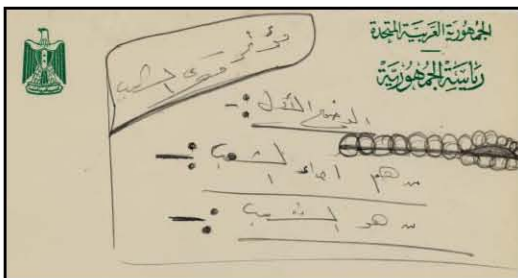 الجمهورية العربية المتحدة
رئاسة الجمهورية
مؤتمر قوى الشعب
الوضع الأول :-
من هم أعداء الشعب :-
من هو الشعب :-